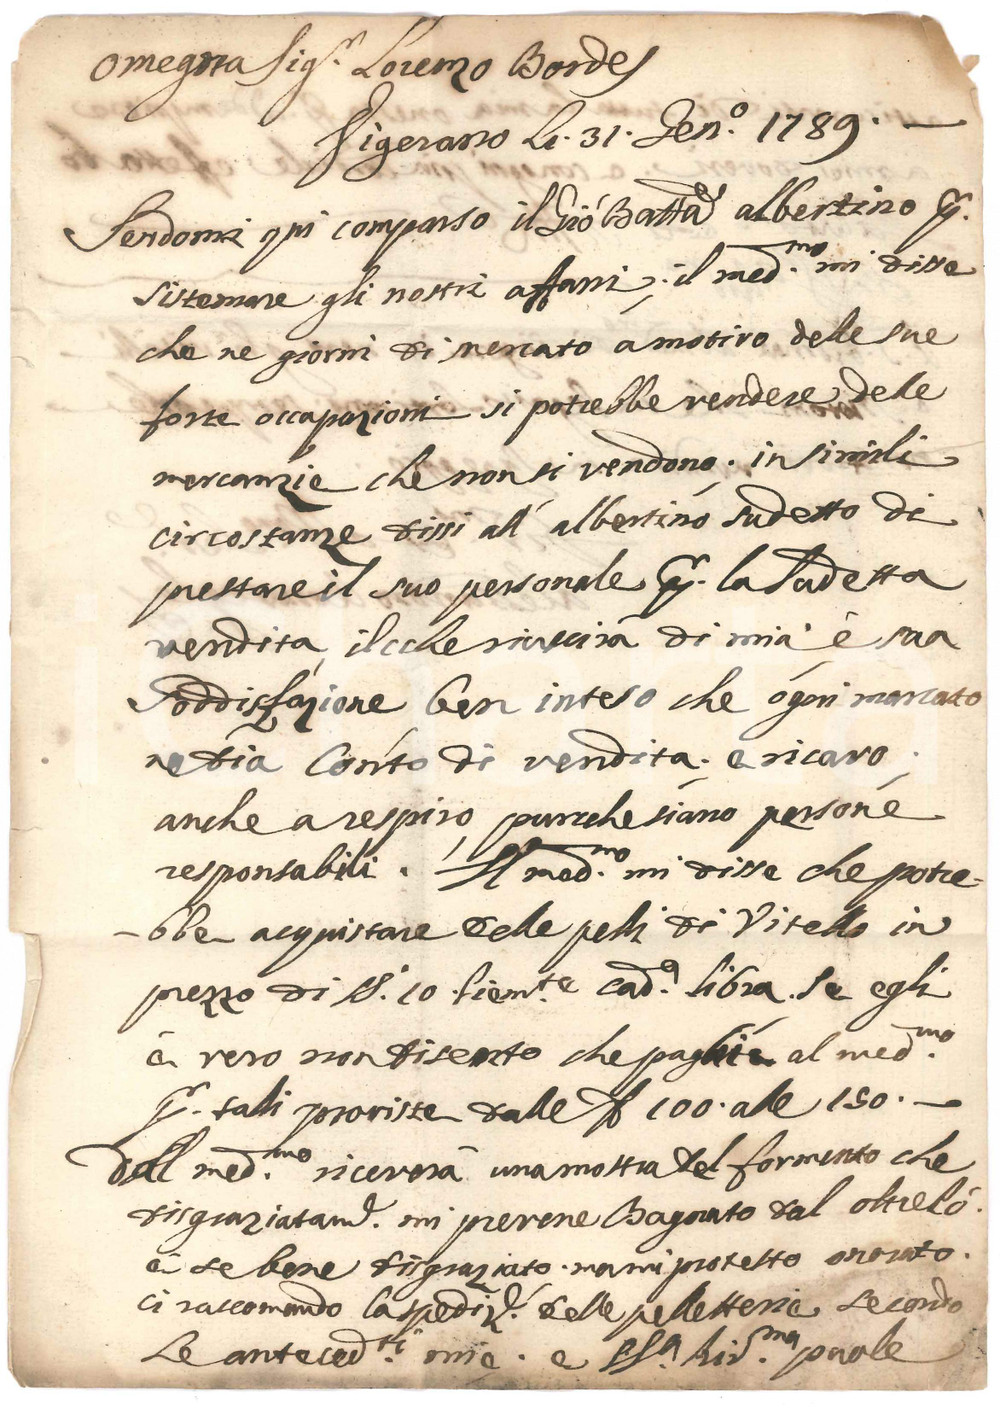 Omegna Sig.r Lorenzo Bordes
Vigevano Li. 31. Gen.o 1789. —
Sendomi qui comparso il Gio Batta albertino p.
sistemare gli nostri affari; il med.mo mi disse
che ne giorni di mercato a motivo delle sue
forte occupazioni si potrebbe vendere delle
mercanzie che non si vendono. in simili
circostanze dissi all' albertino sudetto di
prestare il suo personale p. la sudetta
vendita, ilcche riuscirà di mia è sua
Soddisfazione ben inteso che ogni marcato
ne dia Conto di vendita. e ricavo
anche a respiro, purche siano persone
responsabili. Il med.mo mi disse che potre-
-bbe acquistare delle pelli di Vitello in
prezzo di 10 cad.a libra. Se egli
è vero non disento che paghi al med.mo
p. tali proviste dalle 100. alle 150. —
dall med.mo riceverà una mostra del formento che
disgraziatam. mi pervene Bagnato dal
è se bene disgraziato. ma mi protesto onorato.
ci raccomando la spediz. delle pelletterie secondo
Le anteced.ti mie. e